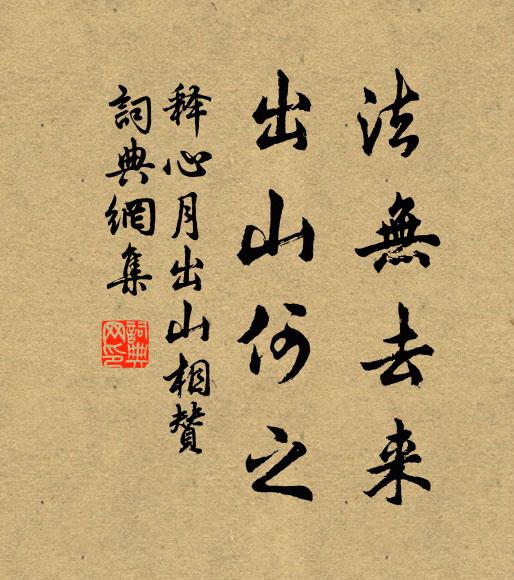 法無去来
出山何之
释心月出山相贊
詞典網集
詞典网印